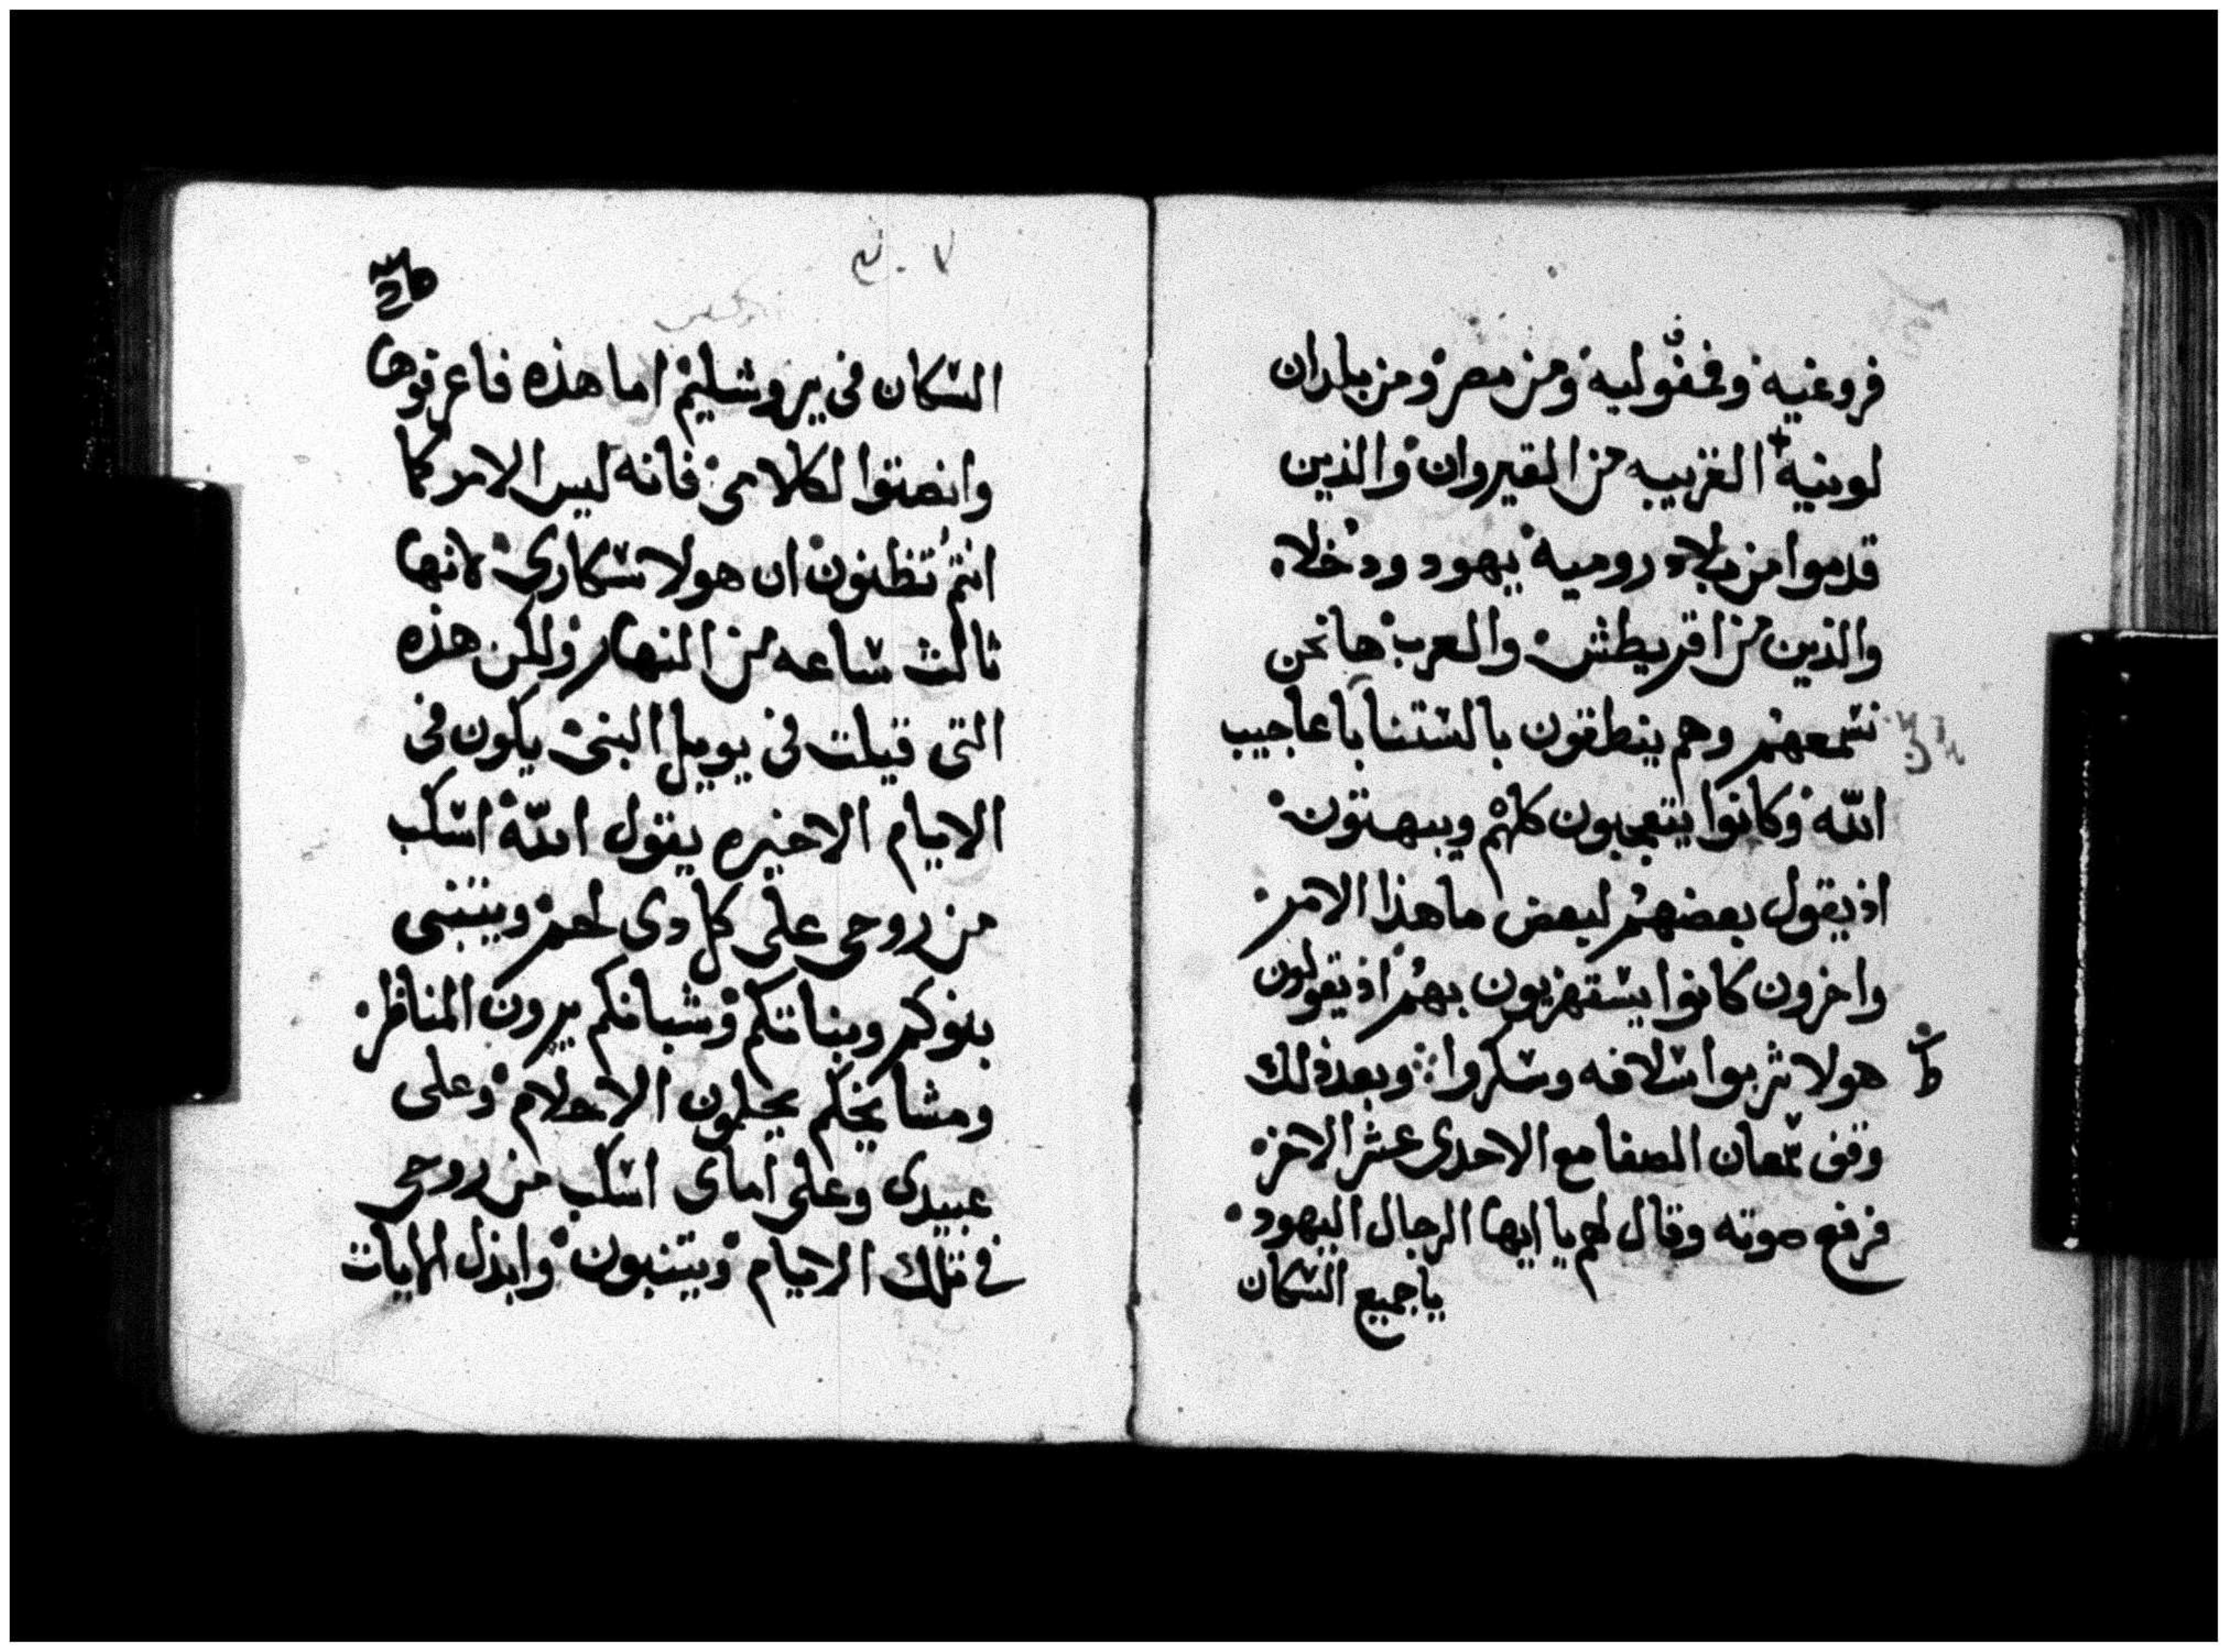 فروغيه وفمفوليه ومن مصر ومن بلدان
لوبيه القريبه من القيروان والذين
قدموا من بلاد روميه يهود ودخلاء
والذين من اقريطش والعرب ها نحن
نسمعهم وهم ينطقون بالسنتنا باعاجيب
الله وكانوا يتعجبون كلهم ويبهتون
اذ يقول بعضهم لبعض ما هذا الامر
واخرون كانوا يستهزيون بهم اذ يقولون
هولا شربوا سلافه وسكروا وبعد ذلك
وقف سمعان الصفا مع الاحدى عشر الاخر
فرفع صوته وقال لهم يا ايها الرجال اليهود
يا جميع السكان
السكان فى يروشليم اما هذه فاعرفوها
وانصتوا لكلامى فانه ليس الامر كما
انتم تظنون ان هولا سكارى لانها
ثالث ساعه من النهار ولكن هذه
التى قيلت فى يوييل النبى يكون فى
الايام الاخيره يقول الله اسكب
من روحى على كل دى لحم ويتنبى
بنوكم وبناتكم وشبانكم يرون المناظر
ومشايخكم يحلمون الاحلام وعلى
عبيدى وعلى اماى اسكب من روحى
فى تلك الايام ويتنبون وابذل الايات